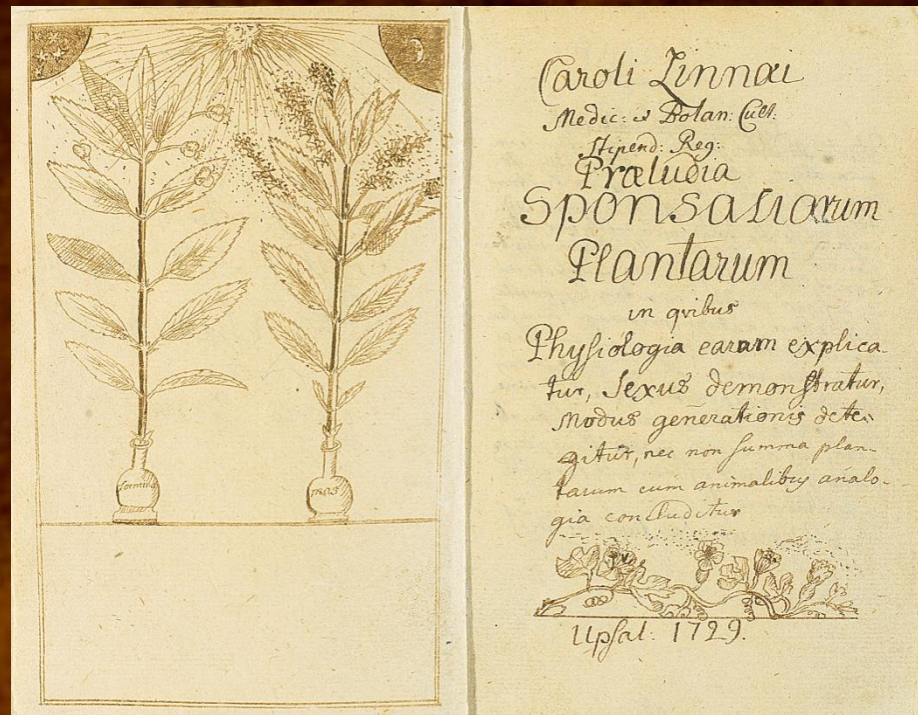 foemina
mas
Caroli Linnæi
Medic: et Botan: Cult:
Stipend: Reg:
Præludia
Sponsaliarum
Plantarum
in qvibus
Physiologia earum explica-
tur, Sexus demonstratur,
Modus generationis dete-
gitur, nec non summa plan-
tarum cum animalibus analo-
gia concluditur
Upsal: 1729.